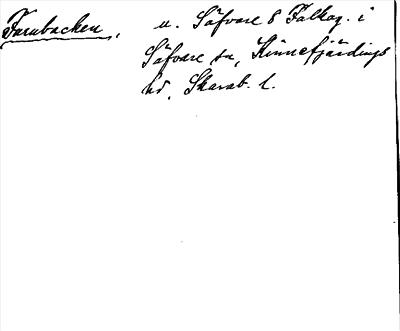 Farnbacken, u. Säfvare 8 Falkag. i
Säfvare sn, Kinnefjärdings
hd, Skarab. l.